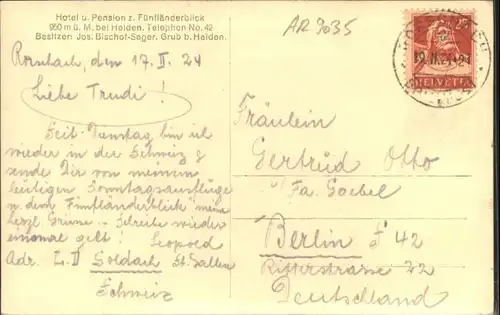 Hotel u. Pension z. Fünfländerblick
950 m ü. M. bei Heiden. Telephon No. 42
Besitzer: Jos. Bischof-Seger. Grub b. Heiden.
AR 9035
Rorschach, den 17. II. 24
Liebe Trudi!
Seit Dienstag bin ich
wieder in der Schweiz &
sende Dir von meinem
heutigen Sonntagsausflüge
n. dem Fünfländerblick meine
herzl. Grüsse – Schreibe wieder
einmal gell! Leopold
Adr. L. D Goldach St. Gallen
Schweiz
HELVETIA
Fräulein
Gertrud Otto
Fa. Goebel
Berlin S 42
Ritterstrasse 22
Deutschland